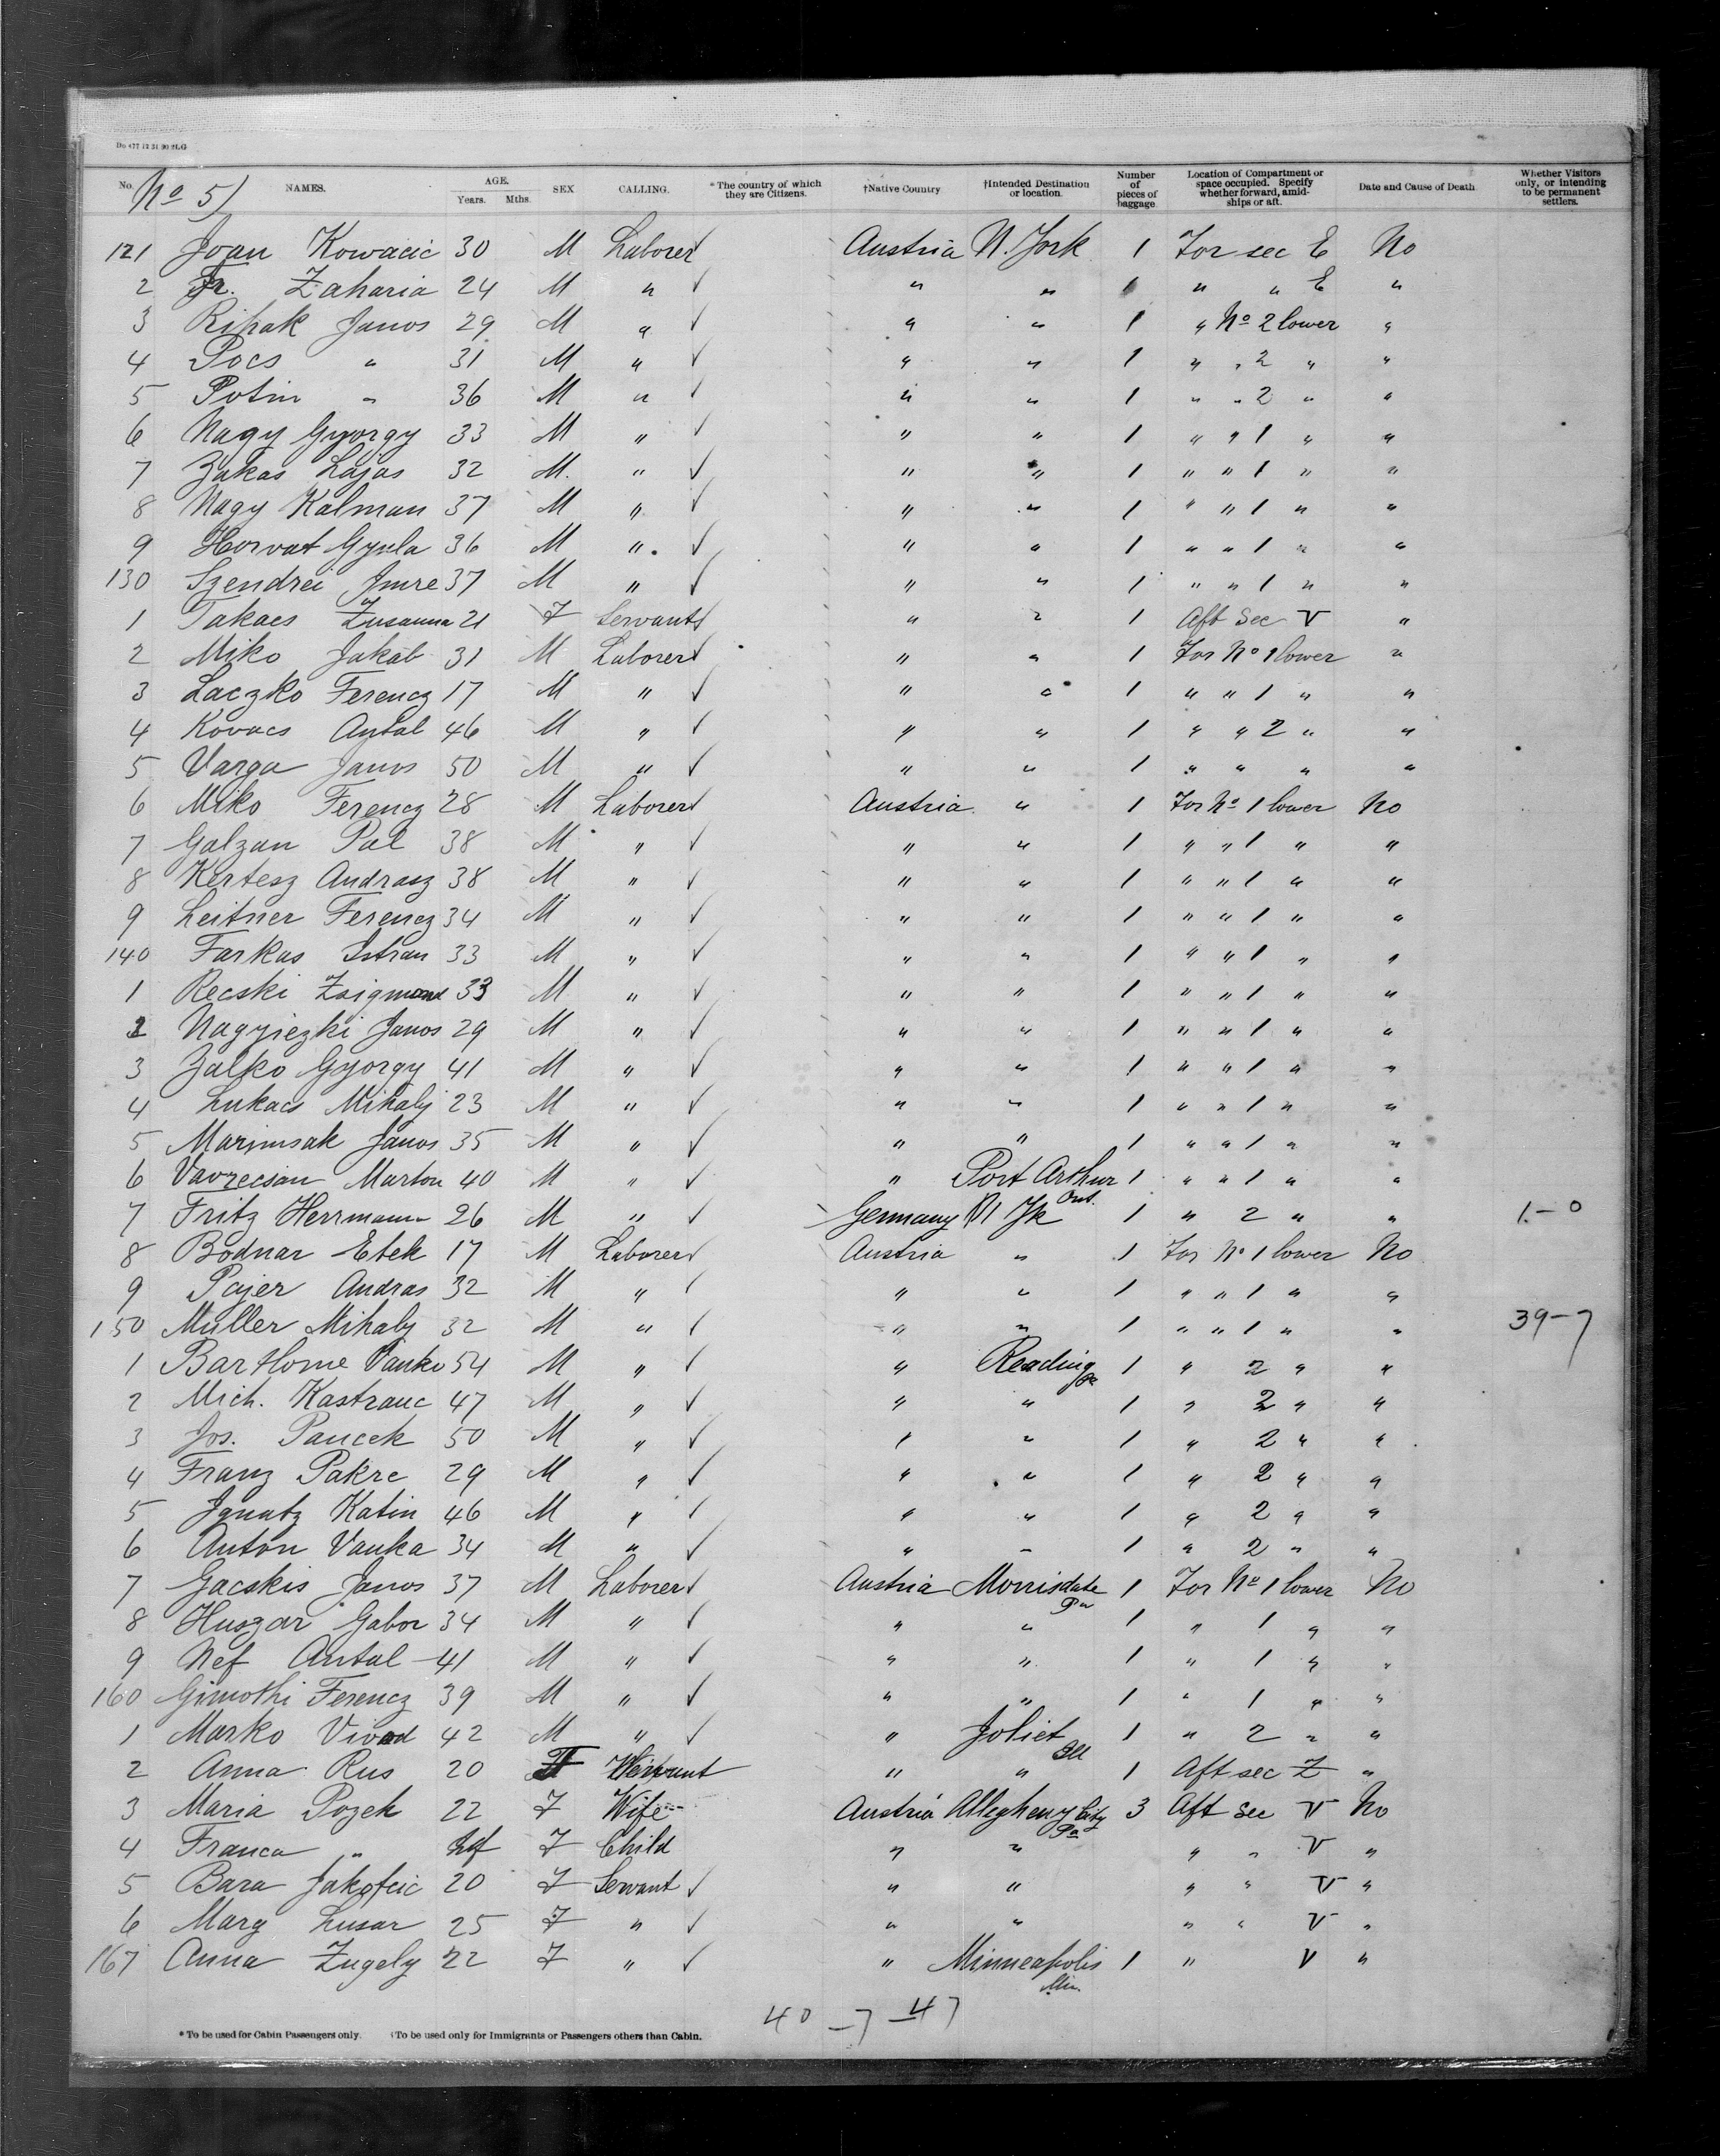 Do 477 12 31 90 2LG
No. NAMES. AGE. Years. Mths. SEX CALLING. *The country of which they are Citizens. †Native Country †Intended Destination or location. Number of pieces of baggage Location of Compartment or space occupied. Specify whether forward, amidships or aft. Date and Cause of Death Whether Visitors only, or intending to be permanent settlers.
No 5)
121 Joan Kowacic 30 M Laborer ✓ Austria N. York 1 For sec E No
2 Fr. Zaharia 24 M " ✓ " " 1 " " E "
3 Rihak Janos 29 M " ✓ " " 1 " No 2 lower "
4 Pocs " 31 M " ✓ " " 1 " " 2 " "
5 Potin " 36 M " ✓ " " 1 " " 2 " "
6 Nagy Gyorgy 33 M " ✓ " " 1 " " 1 " "
7 Zakas Lajos 32 M. " ✓ " " 1 " " 1 " "
8 Nagy Kalman 37 M " ✓ " " 1 " " 1 " "
9 Horvat Gyula 36 M " ✓ " " 1 " " 1 " "
130 Szendrei Imre 37 M " ✓ " " 1 " " 1 " "
1 Takacs Zusanna 21 F Servant ✓ " " 1 Aft Sec V "
2 Miko Jakab 31 M Laborer ✓ " " 1 For No 1 lower "
3 Laczko Ferencz 17 M " ✓ " " 1 " " 1 " "
4 Kovacs Antal 46 M " ✓ " " 1 " " 2 " "
5 Varga Janos 50 M " ✓ " " 1 " " " "
6 Miko Ferencz 28 M Laborer ✓ Austria " 1 For No 1 lower No
7 Galzan Pal 38 M " ✓ " " 1 " " 1 " "
8 Kertesz Andrasz 38 M " ✓ " " 1 " " 1 " "
9 Leitner Ferencz 34 M " ✓ " " 1 " " 1 " "
140 Farkas Istvan 33 M " ✓ " " 1 " " 1 " "
1 Recski Zsigmond 33 M " ✓ " " 1 " " 1 " "
2 Nagyiezki Janos 29 M " ✓ " " 1 " " 1 " "
3 Zalko Gyorgy 41 M " ✓ " " 1 " " 1 " "
4 Lukacs Mihaly 23 M " ✓ " " 1 " " 1 " "
5 Janos 35 M " ✓ " " 1 " " 1 " "
6 Vavrecsan Marton 40 M " ✓ " Port Arthur Ont. 1 " " 1 " "
7 Fritz Herrmann 26 M " ✓ Germany N Yk 1 " 2 " " 1 - 0
8 Bodnar Elek 17 M Laborer ✓ Austria " 1 For No 1 lower No
9 Pajer Andras 32 M " ✓ " " 1 " " 1 " "
150 Muller Mihaly 32 M " ✓ " " 1 " " 1 " " 39 - 7
1 Barthome Vanko 54 M " ✓ " Reading Pa 1 " 2 " "
2 Mich. Kastranc 47 M " ✓ " " 1 " 2 " "
3 Jos. Pancek 50 M " ✓ " " 1 " 2 " "
4 Franz Pakre 29 M " ✓ " " 1 " 2 " "
5 Ignatz Katin 46 M " ✓ " " 1 " 2 " "
6 Anton Vanka 34 M " ✓ " " 1 " 2 " "
7 Gacskis Janos 37 M Laborer ✓ Austria Morrisdale Pa 1 For No 1 lower No
8 Huszar Gabor 34 M " ✓ " " 1 " 1 " "
9 Nef Antal 41 M " ✓ " " 1 " 1 " "
160 Gimothi Ferencz 39 M " ✓ " " 1 " 1 " "
1 Marko Vivod 42 M " ✓ " Joliet Ill 1 " 2 " "
2 Anna Rus 20 F Servant " " 1 Aft sec Z "
3 Maria Pozek 22 F Wife Austria Allegheny City Pa 3 Aft sec V No
4 Franca " inf F Child " " " " V "
5 Bara Jakofcic 20 F Servant ✓ " " " " V "
6 Mary Lusar 25 F " ✓ " " " " V "
167 Anna Zugely 22 F " ✓ " Minneapolis Min. 1 " V "
40 - 7 - 47
*To be used for Cabin Passengers only. †To be used only for Immigrants or Passengers others than Cabin.